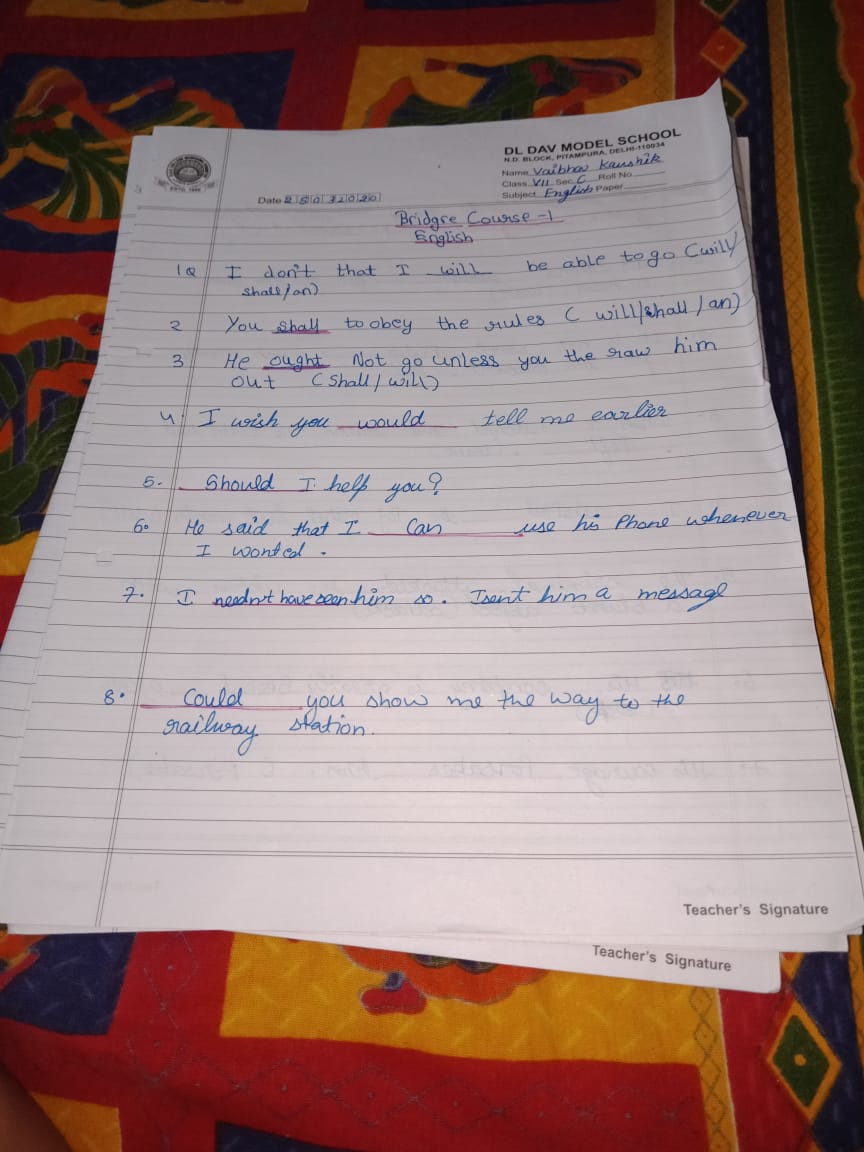 DL DAV MODEL SCHOOL
N.D. BLOCK, PITAMPURA, DELHI-110034
Name Vaibhav Kaushik
Class VII Sec C Roll No
Subject English Paper
ESTD. 1980
Date 25032020
Bridgre Course -1
English
1Q I don't that I will be able to go (will/
shall/an)
2 You shall to obey the rules ( will/shall / an)
3 He ought Not go unless you the raw him
out (Shall / will)
4. I wish you would tell me earlier
5. Should I help you?
6. He said that I Can use his Phone whenever
I wonted.
7. I needn't have seen him so. I sent him a message
8. Could you show me the way to the
railway station.
Teacher's Signature
Teacher's Signature